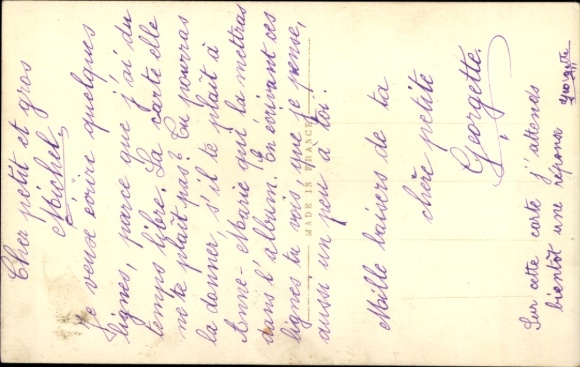 Cher petit et gros
Michel,
Je veux écrire quelques
lignes, parce que j'ai du
temps libre. La carte elle
ne te plaît pas? Tu pourras
la donner, s'il te plaît à
Anne-Marie qui la mettras
dans l'album. En écrivant ces
lignes tu vois que je pense,
aussi un peu à toi.
MADE IN FRANCE
Mille baisers de ta
chère petite
Georgette.
Sur cette carte j'attends
bientôt une réponse
Georgette